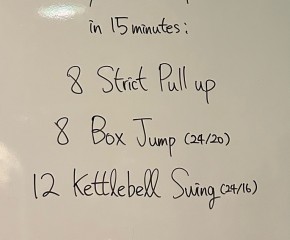 in 15 minutes:
8 Strict Pull up
8 Box Jump (24/20)
12 Kettlebell Swing (24/16)